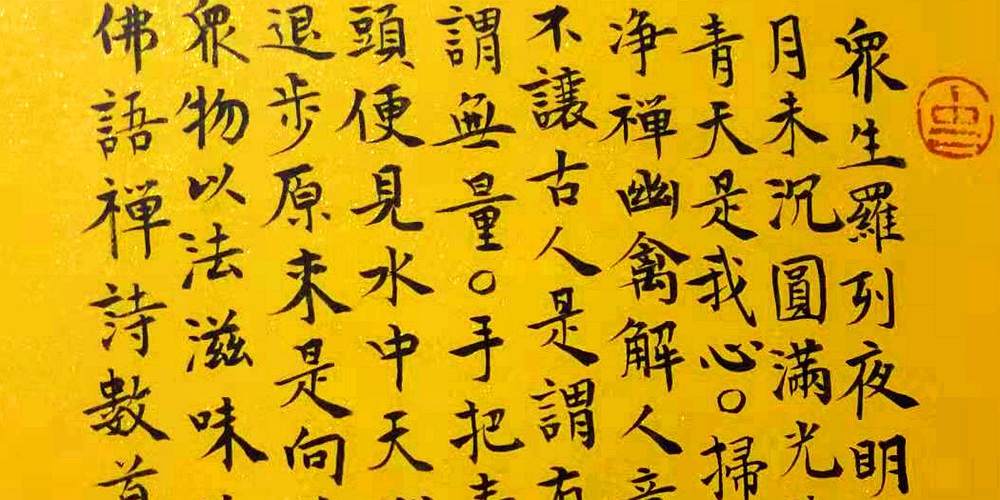 衆生羅列夜明
月未沉圓滿光
青天是我心○掃
淨禪幽禽解人
不讓古人是謂
謂無量○手把
頭便見水中天
退步原來是向
衆物以法滋味
佛語禪詩數